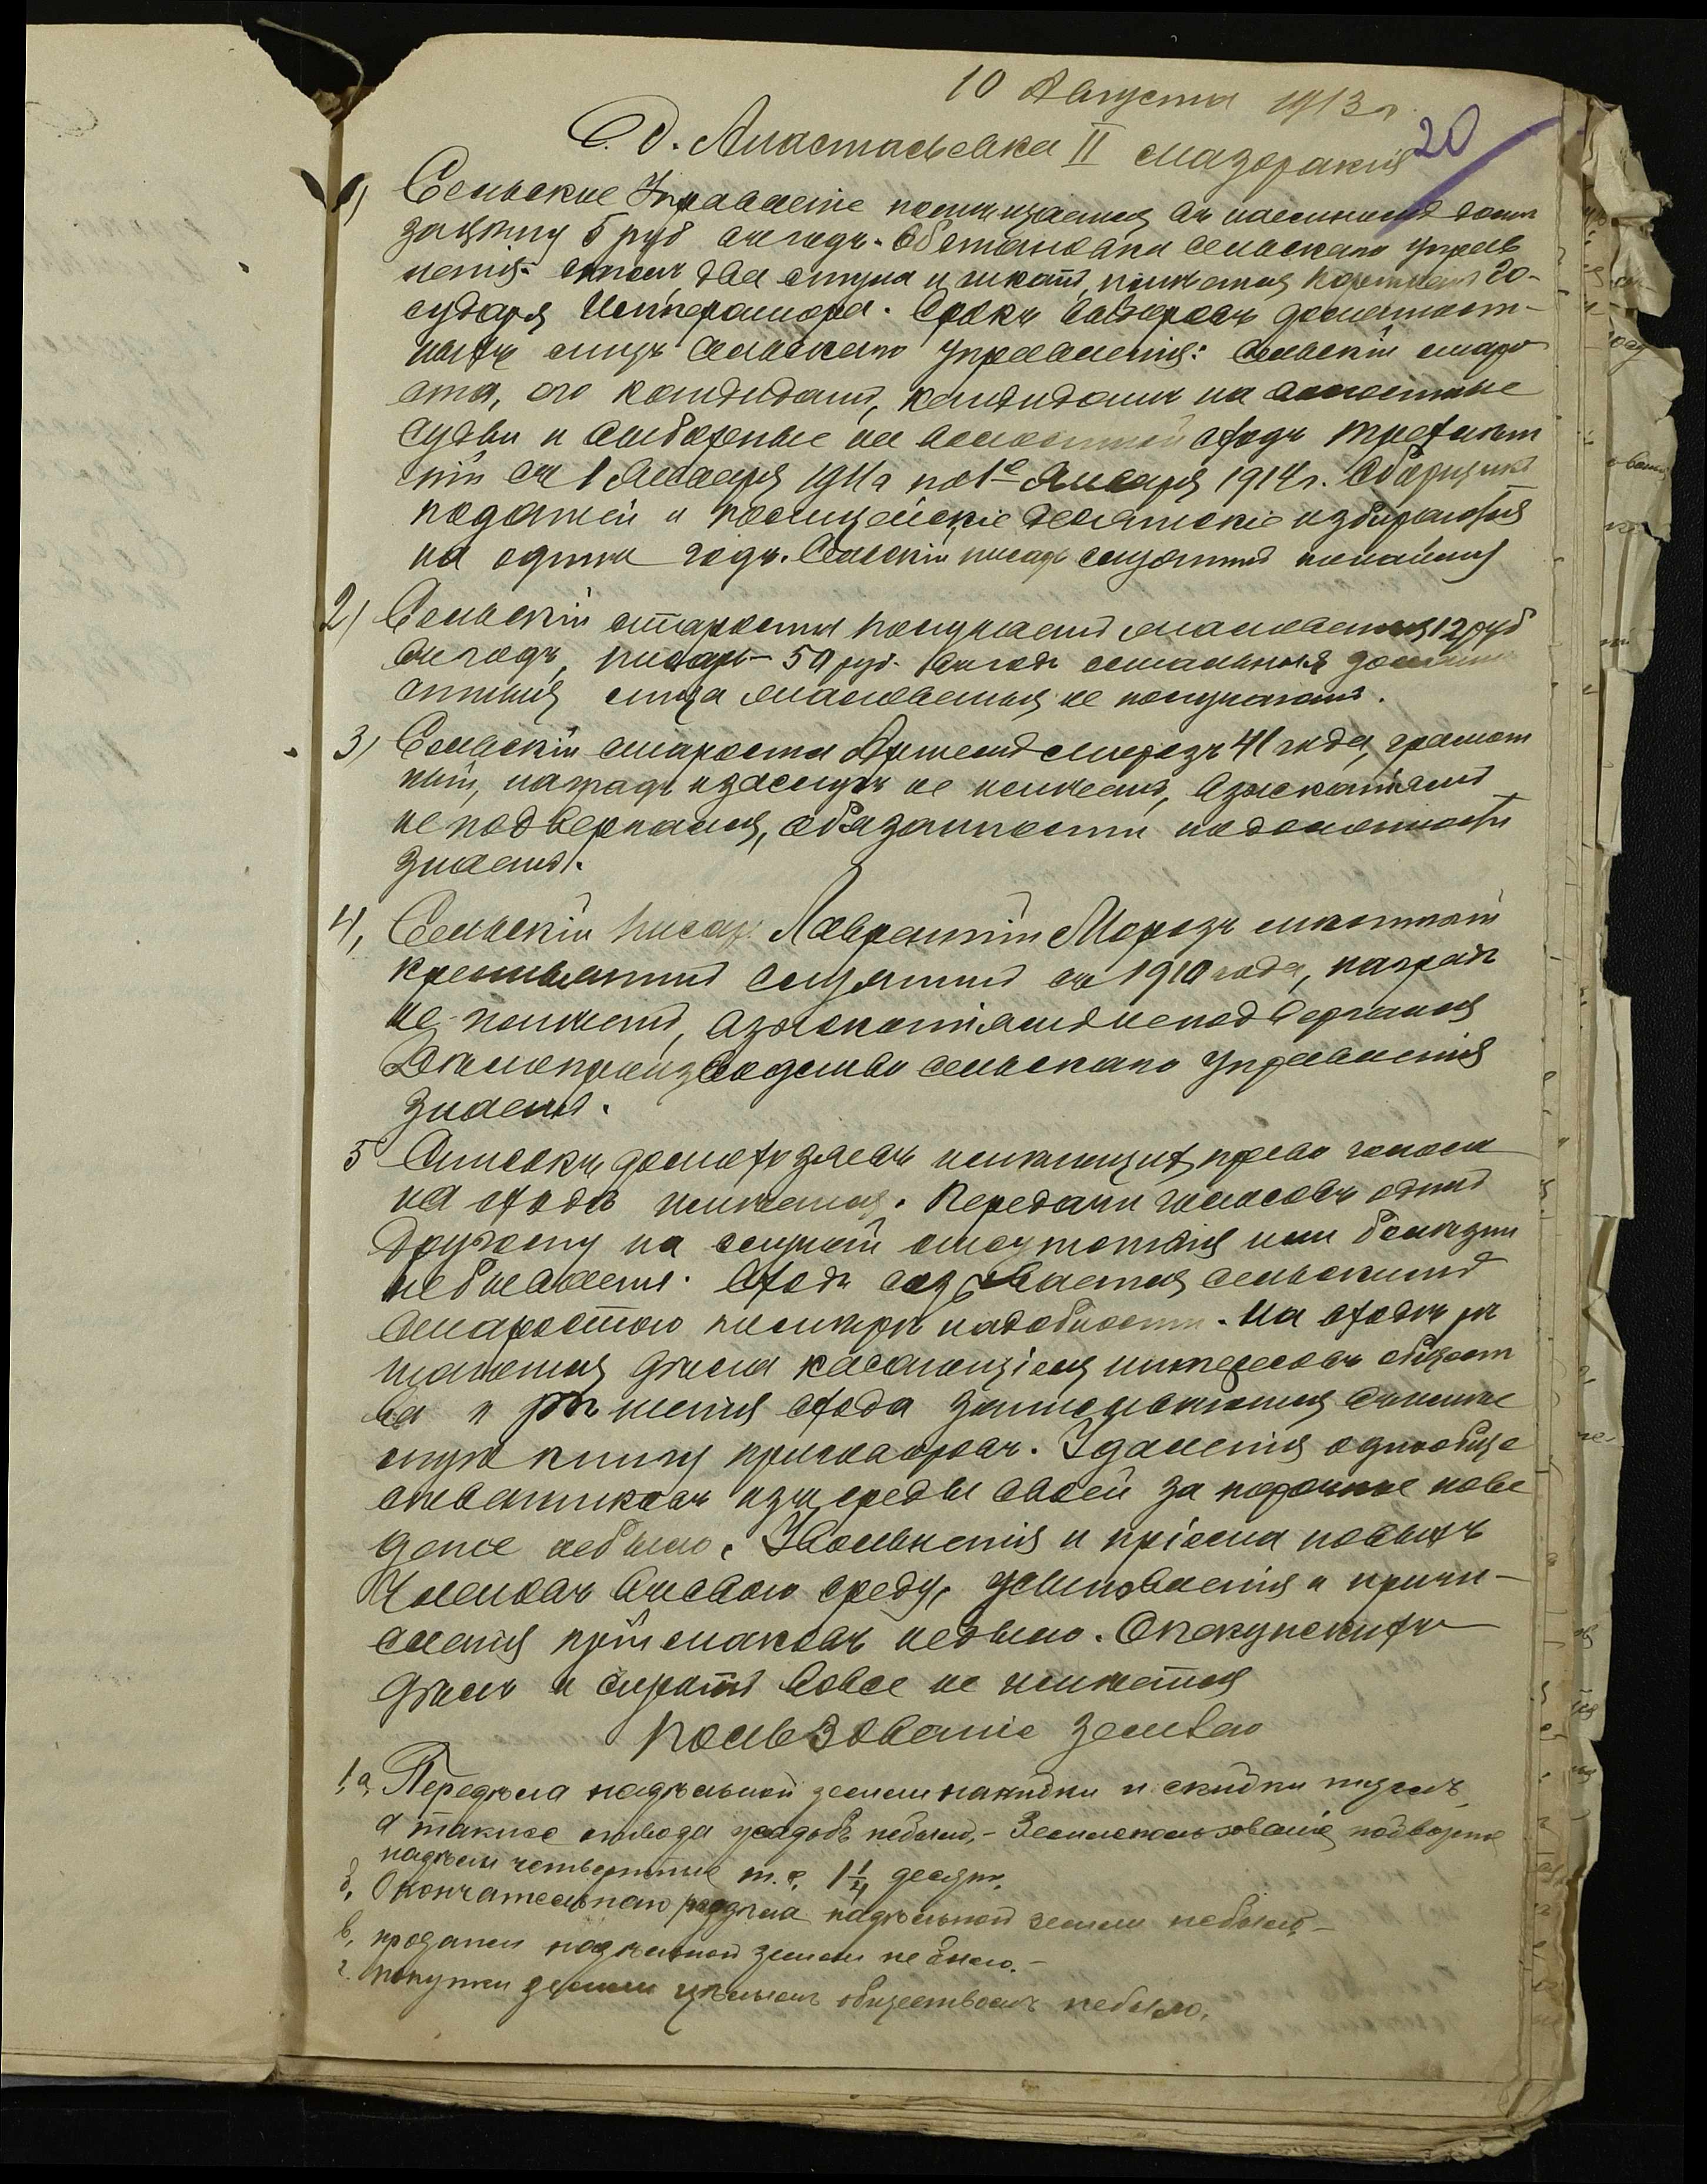 10 Августа 1913 г
20
С. О. Анастасьевка II Мазоракия
1) Сельское Управленіе помищается въ наемномъ домѣ
за цѣну 5 руб въ годъ. Обстановка сельскаго управ
ленія: столъ, два стула и шкапъ, имѣется портретъ Го-
сударя Императора. Срокъ выборовъ должност-
ныхъ лицъ сельскаго управленія: сельскій старо
ста, его кандидатъ, кандидаты на волостные
судьи и выборные на волостной сходъ трехлѣт
ній съ 1 Января 1911 г по 1е Января 1914 г. Сборщикъ
податей и полицейскіе десятскіе избираются
на одинъ годъ. Сельскій писарь служитъ по найму
2) Сельскій староста получаетъ жалованья 12 руб
въ годъ, писарь - 50 руб. въ годъ остальныя должно
стныя лица жалованья не получаютъ.
3) Сельскій староста Артемъ Морозъ 41 года, грамот
ный, наградъ и заслугъ не имѣетъ, взысканіямъ
не подвергался, обязанности по должности
знаетъ.
4, Сельскій писарь Лаврентій Морозъ мѣстный
крестьянинъ служитъ съ 1910 года, наградъ
не имѣетъ, взысканіямъ не подвергался
Дѣлопроизводство сельскаго управленія
знаетъ.
5 Списокъ домохозяевъ имѣющихъ право голоса
на сходѣ имѣется. Передачи голосовъ одинъ
другому на случай отсутствія или болѣзни
не бываетъ. Сходъ созывается сельскимъ
старостою по мѣрѣ надобности. На сходѣ рѣ
шаются дѣла касающіеся интересовъ общест
ва и рѣшенія схода записываются въ
книгу приговоровъ. Удаленія однообще
ственниковъ изъ среды своей за порочное пове
деніе небыло. Увольненія и пріема новыхъ
Членовъ въ свою среду, усыновленія и причи-
сленія пріймаковъ небыло. Опекунскихъ
дѣлъ и сиротъ вовсе не имѣется
Пользованіе землею
1, а. Передѣла надѣльной земли накидки и скидки тяголъ,
а также отвода усадьбъ небыло. - Землепользованіе подворное
надѣлы четвертные т. е. 1 1/4 десят.
б, Окончательнаго раздѣла надѣльной земли небыло, -
в, продажи надѣльной земли не было. -
г. покупки земли цѣлымъ обществомъ небыло.